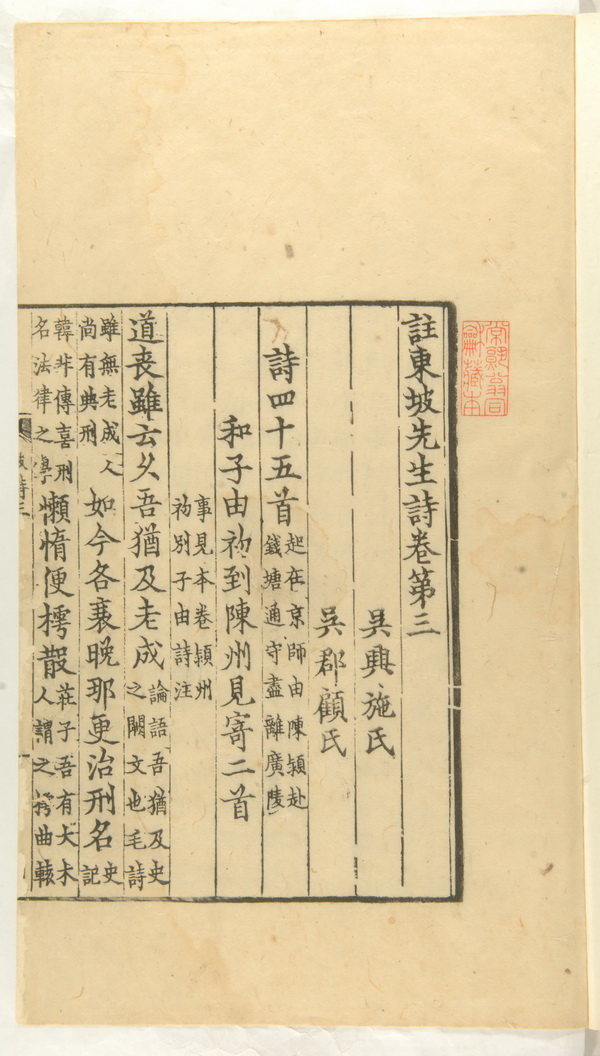 常熟翁同
龢藏本
註東坡先生詩卷第三
吳興施氏
吳郡顧氏
詩四十五首起在京師由陳頴赴錢塘通守盡離廣陵
和子由初到陳州見寄二首
事見本卷頴州初別子由詩注
道喪雖云久吾猶及老成論語吾猶及史之闕文也毛詩
雖無老成人尚有典刑如今各衰晚那更治刑名史記
韓非傳喜刑名法律之學懶惰便樗散莊子吾有大木人謂之樗曲轅